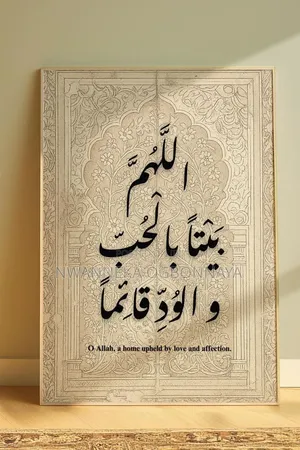 اللَّهُمَّ
بَيْتاً بالحُبّ
NWANNEKA OGBONNAYA
و الوُدِّ قائِماً
O Allah, a home upheld by love and affection.